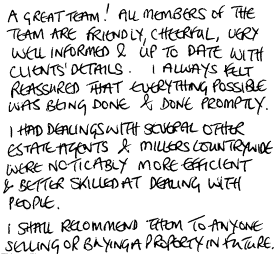 A GREAT TEAM! ALL MEMBERS OF THE
TEAM ARE FRIENDLY, CHEERFUL, VERY
WELL INFORMED & UP TO DATE WITH
CLIENTS' DETAILS. I ALWAYS FELT
REASSURED THAT EVERYTHING POSSIBLE
WAS BEING DONE & DONE PROMPTLY.
I HAD DEALINGS WITH SEVERAL OTHER
ESTATE AGENTS & MILLERS COUNTRYWIDE
WERE NOTICABLY MORE EFFICIENT
& BETTER SKILLED AT DEALING WITH
PEOPLE.
I SHALL RECOMMEND THEM TO ANYONE
SELLING OR BUYING A PROPERTY IN FUTURE.